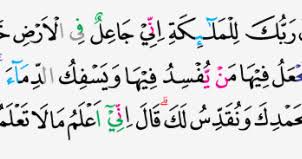 رَبُّكَ لِلْمَلٰٓئِكَةِ اِنِّيْ جَاعِلٌ فِى الْاَرْضِ
فِيْهَا مَنْ يُّفْسِدُ فِيْهَا وَيَسْفِكُ الدِّمَآءَ
وَنُقَدِّسُ لَكَ قَالَ اِنِّيْٓ اَعْلَمُ مَا لَا